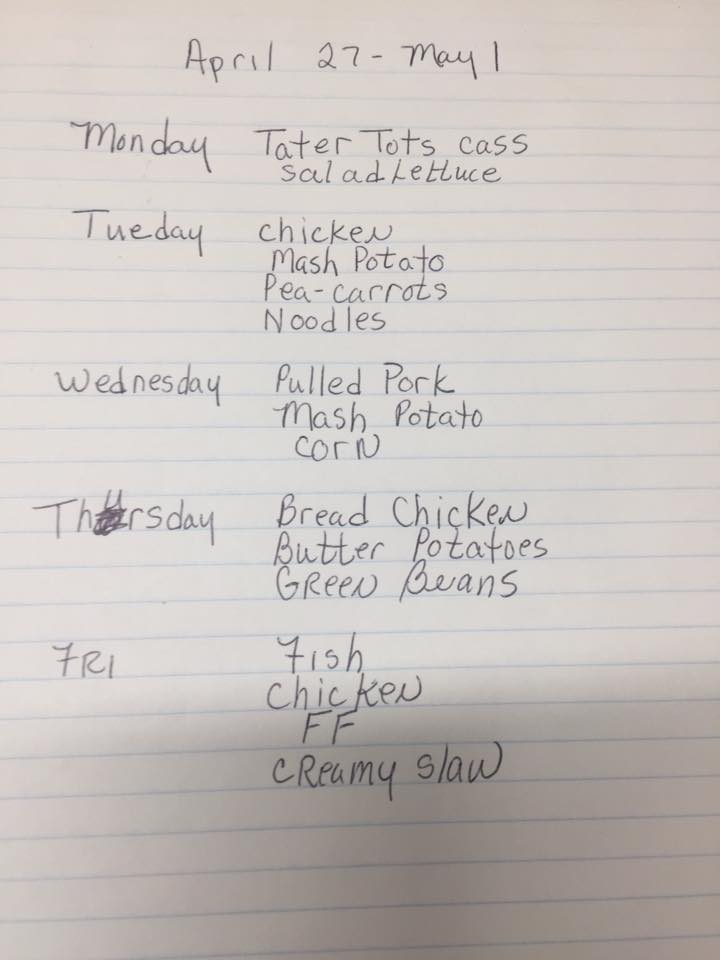 April 27 - May 1
Monday Tater Tots cass
salad Lettuce
Tueday chicken
Mash Potato
Pea-carrots
Noodles
Wednesday Pulled Pork
Mash Potato
CORN
Thursday Bread Chicken
Butter Potatoes
GReeN Beans
FRI Fish
chicken
FF
CReamy slaw